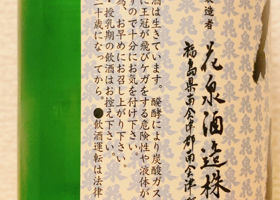 造者
花泉酒造株
福島県南会津郡南会津
酒は生きています。醗酵により炭酸ガス
に王冠が飛びケガをする危険性や液体が
ので十分にお気を付け下さい
為、お早めにお召し上り下さい
・授乳期の飲酒はお控え下さい
二十歳になってから。●飲酒運転は法律